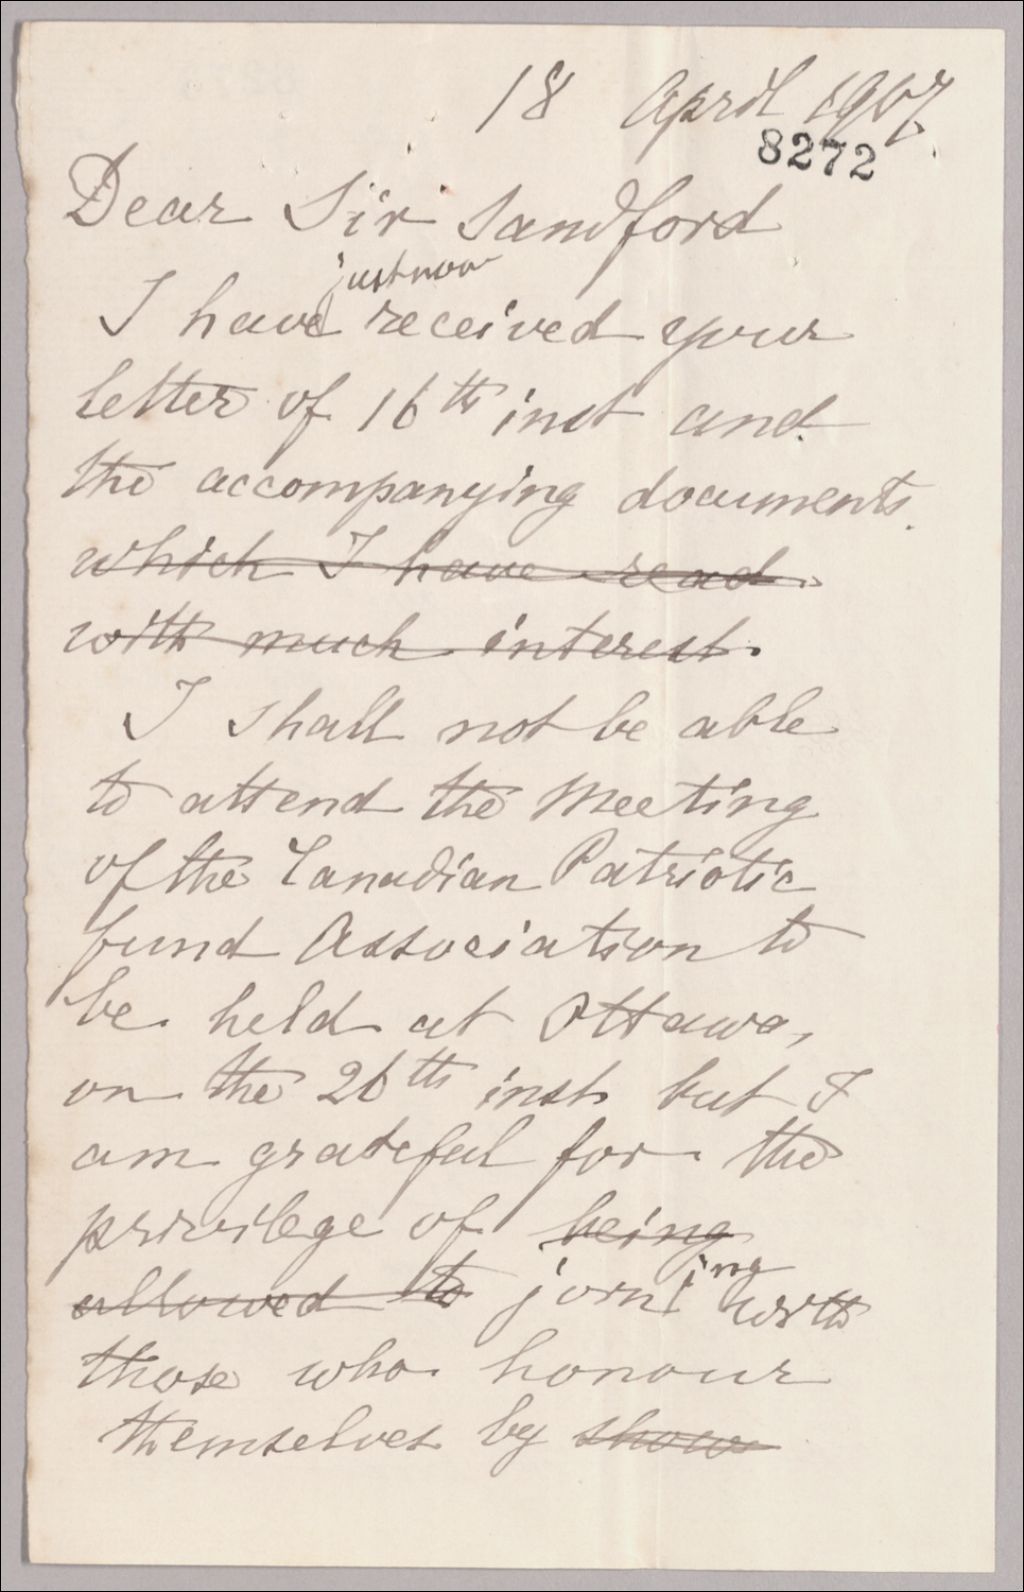 18 April 1907.
8272
Dear Sir Sandford
just now
I have received your
letter of 16th inst and
the accompanying documents.
which I have read
with much interest.
I shall not be able
to attend the Meeting
of the Canadian Patriotic
fund Association to
be held at Ottawa,
on the 26th inst but I
am grateful for the
privilege of being
allowed to joining with
those who honour
themselves by show